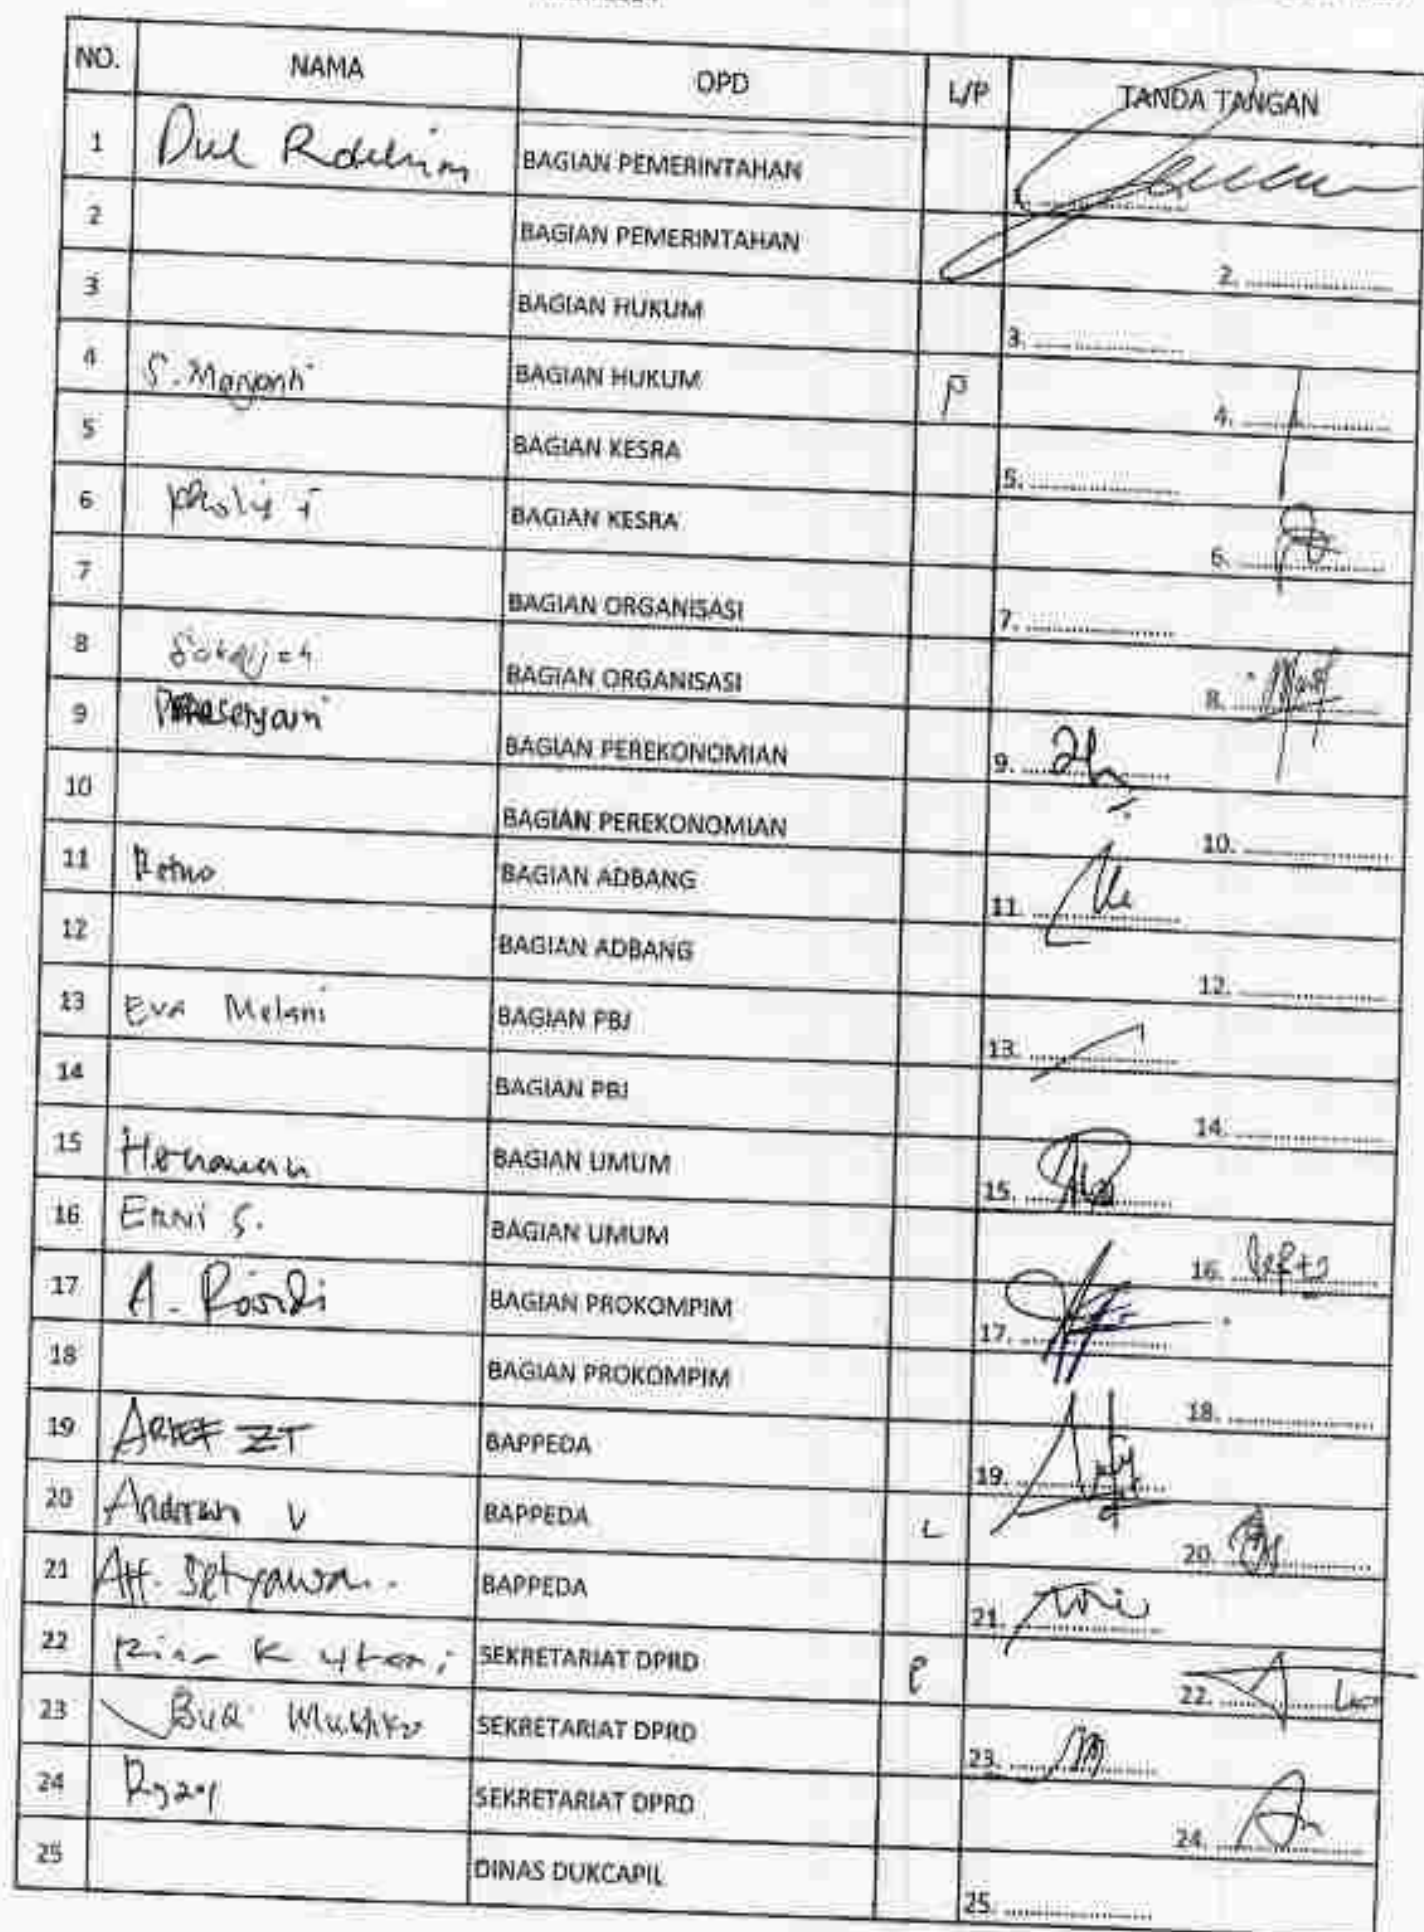 NO. NAMA OPD L/P TANDA TANGAN
1 Dul BAGIAN PEMERINTAHAN 1.
2 BAGIAN PEMERINTAHAN 2.
3 BAGIAN HUKUM 3.
4 S. Maryanti BAGIAN HUKUM P 4.
5 BAGIAN KESRA 5.
6 BAGIAN KESRA 6.
7 BAGIAN ORGANISASI 7.
8 BAGIAN ORGANISASI 8.
9 BAGIAN PEREKONOMIAN 9.
10 BAGIAN PEREKONOMIAN 10.
11 Retno BAGIAN ADBANG 11.
12 BAGIAN ADBANG 12.
13 Eva Melani BAGIAN PBJ 13.
14 BAGIAN PBJ 14.
15 Henawan BAGIAN UMUM 15.
16 Erni S. BAGIAN UMUM 16.
17 A. Rosidi BAGIAN PROKOMPIM 17.
18 BAGIAN PROKOMPIM 18.
19 ARIEF ZT BAPPEDA 19.
20 V BAPPEDA L 20.
21 Setyawan BAPPEDA 21.
22 K Utami SEKRETARIAT DPRD P 22.
23 SEKRETARIAT DPRD 23.
24 SEKRETARIAT DPRD 24.
25 DINAS DUKCAPIL 25.